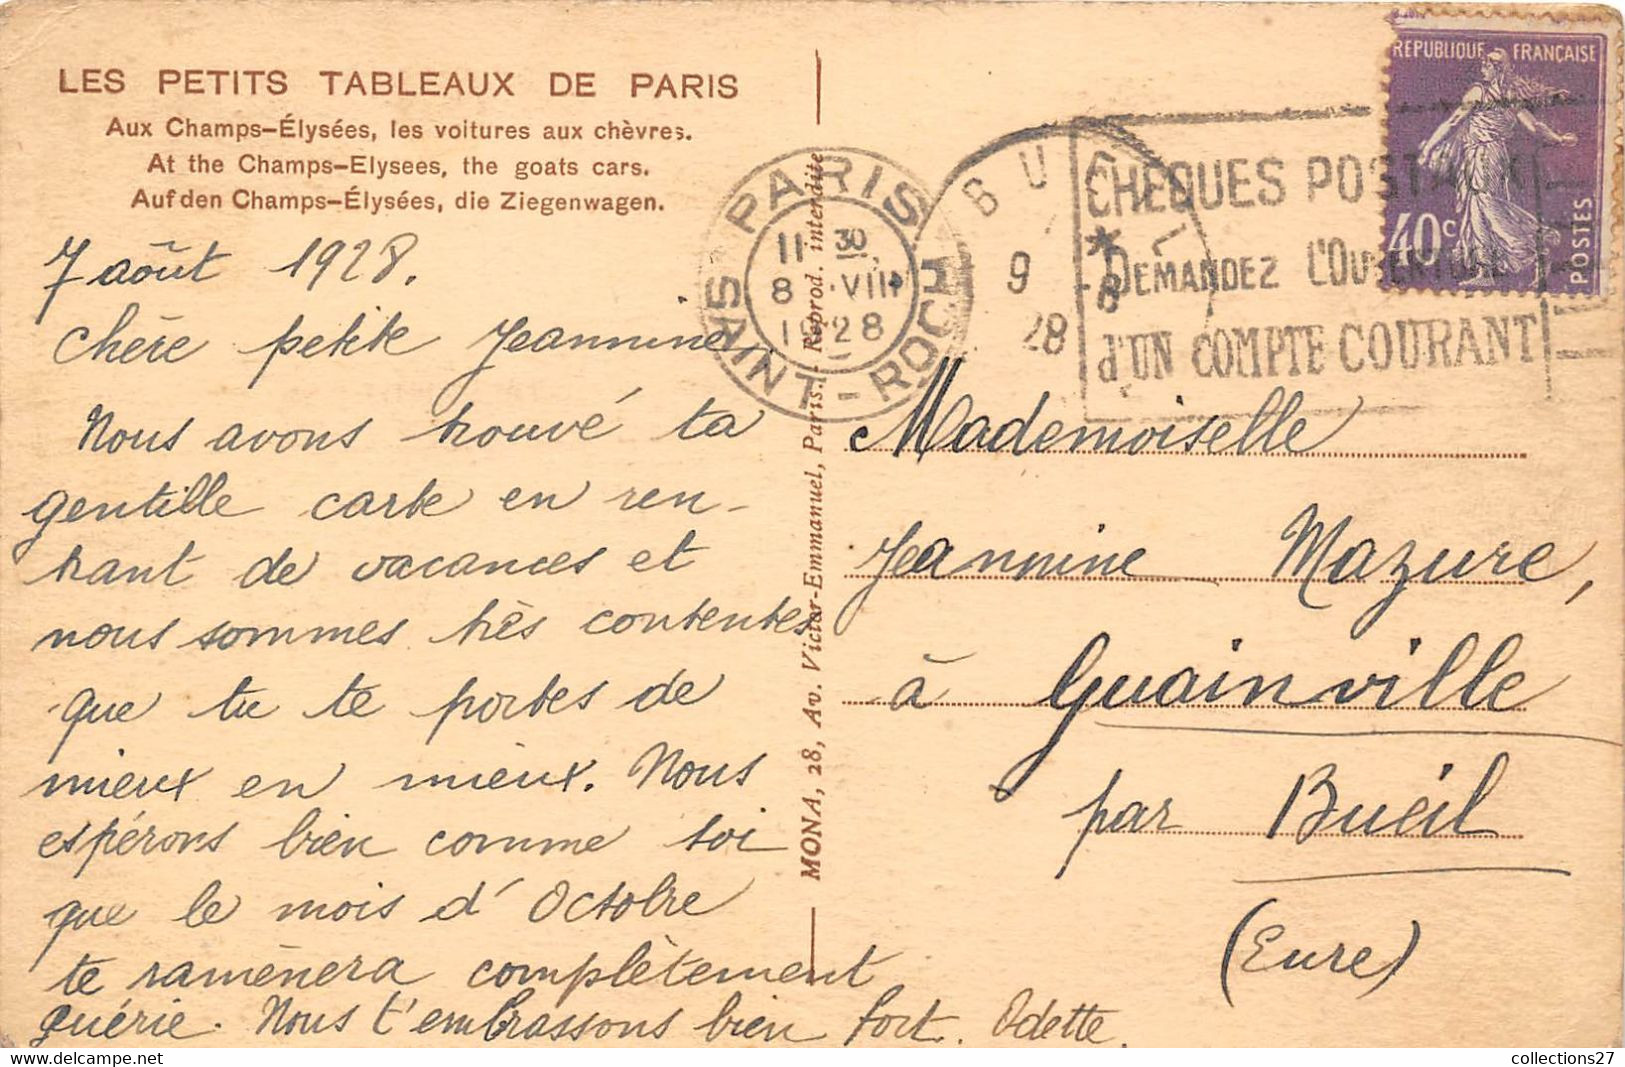 LES PETITS TABLEAUX DE PARIS
Aux Champs-Élysées, les voitures aux chèvres.
At the Champs-Elysees, the goats cars.
Auf den Champs-Élysées, die Ziegenwagen.
7 août 1928.
Chère petite Jeannine,
Nous avons trouvé ta
gentille carte en ren-
trant de vacances et
nous sommes très contentes
que tu te portes de
mieux en mieux. Nous
espérons bien comme toi
que le mois d'Octobre
te ramènera complètement
guérie. Nous t'embrassons bien fort. Odette.
MONA, 28, Av. Victor-Emmanuel, Paris. - Reprod. interdite
PARIS
11 30
8 VIII
1928
SAINT-ROCH
BUEIL
*
9
8
28
CHÈQUES POSTAUX
DEMANDEZ L'OUVERTURE
d'UN COMPTE COURANT
REPUBLIQUE FRANÇAISE
40c
POSTES
Mademoiselle
Jeannine Mazure,
à Guainville
par Bueil
(Eure)
collections27